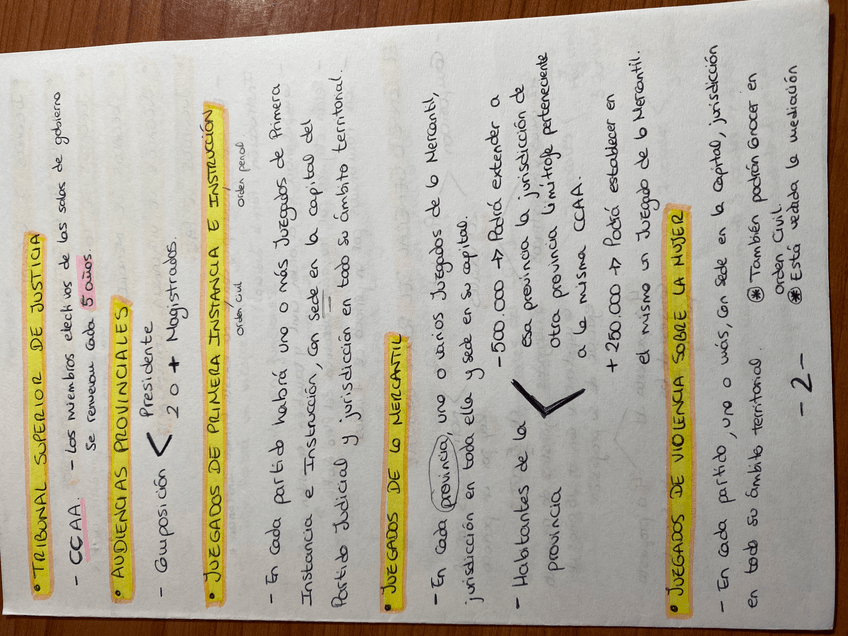 • TRIBUNAL SUPERIOR DE JUSTICIA
- CCAA. - Los miembros electivos de las salas de gobierno
se renuevan cada 5 años.
• AUDIENCIAS PROVINCIALES
- Composición < Presidente
2 o + Magistrados.
• JUZGADOS DE PRIMERA INSTANCIA E INSTRUCCIÓN
orden civil orden penal
- En cada partido habrá uno o más Juzgados de Primera
Instancia e Instrucción, con sede en la capital del
Partido Judicial y jurisdicción en todo su ámbito territorial.
• JUZGADOS DE LO MERCANTIL
- En cada provincia, uno o varios Juzgados de lo Mercantil,
jurisdicción en toda ella y sede en su capital.
- Habitantes de la
provincia
<
- 500.000 → Podrá extender a
esa provincia la jurisdicción de
otra provincia limítrofe perteneciente
a la misma CCAA.
+ 250.000 → Podrá establecer en
el mismo un Juzgado de lo Mercantil.
• JUZGADOS DE VIOLENCIA SOBRE LA MUJER
- En cada partido, uno o más, con sede en la capital, jurisdicción
en todo su ámbito territorial.
* También podrán conocer en
orden Civil.
* Está vedada la mediación
- 2 -